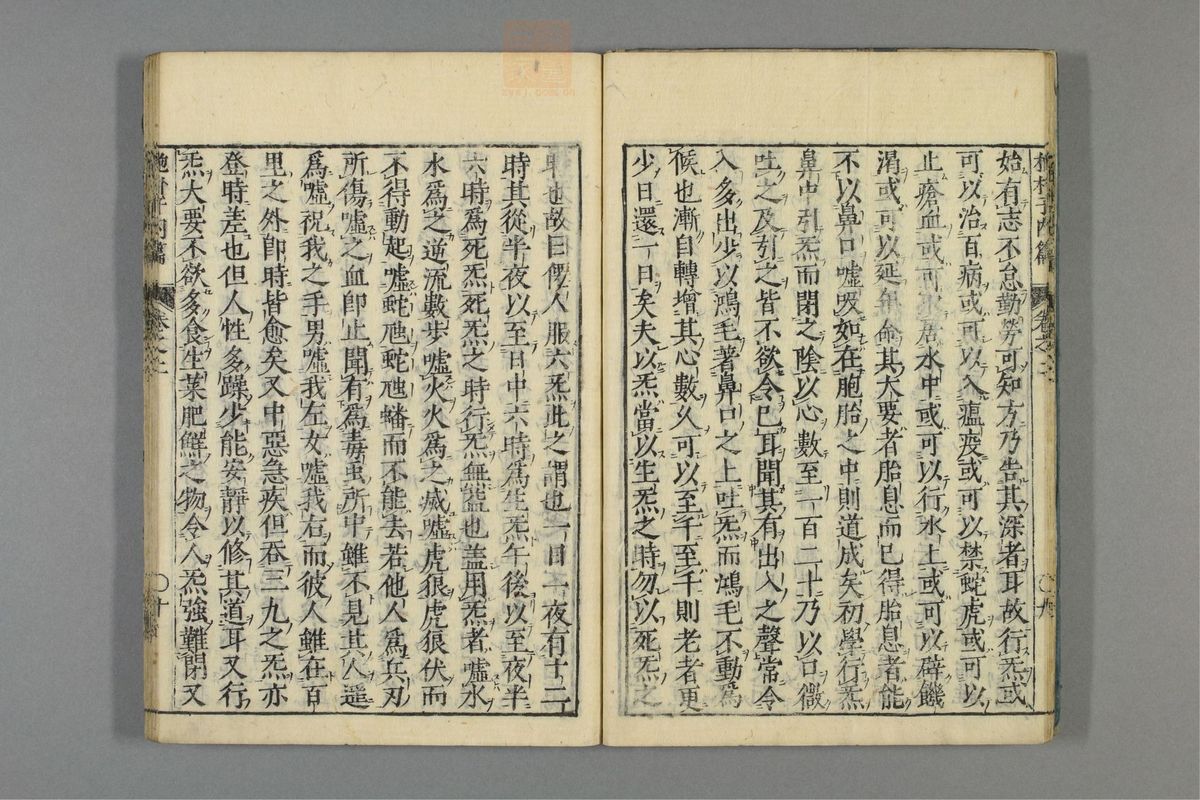 抱朴子內篇 卷之二 〇九
始有志不怠勤勞可知方乃告其深者耳故行炁或
可以治百病或可以入瘟疫或可以禁蛇虎或可以
止瘡血或可以居水中或可以行水上或可以辟饑
渴或可以延年命其大要者胎息而已得胎息者能
不以鼻口噓吸如在胞胎之中則道成矣初學行炁
鼻中引炁而閉之陰以心數至一百二十乃以口微
吐之及引之皆不欲令己耳聞其有出入之聲常令
入多出少以鴻毛著鼻口之上吐炁而鴻毛不動爲
候也漸自轉增其心數久可以至千至千則老者更
少日還一日矣夫以炁當以生炁之時勿以死炁之
時也故曰僊人服六炁此之謂也一日一夜有十二
時其從半夜以至日中六時爲生炁午後以至夜半
六時爲死炁死炁之時行炁無益也盖用炁者噓水
水爲之逆流數步噓火火爲之滅噓虎狼虎狼伏而
不得動起噓蛇虺蛇虺蟠而不能去若他人爲兵刃
所傷噓之血即止聞有爲毒虫所中雖不見其人遥
爲噓祝我之手男噓我左女噓我右而彼人雖在百
里之外即時皆愈矣又中惡急疾但吞三九之炁亦
登時差也但人性多躁少能安靜以修其道耳又行
炁大要不欲多食生菜肥鮮之物令人炁強難閉又
抱朴子內篇 卷之二 〇十